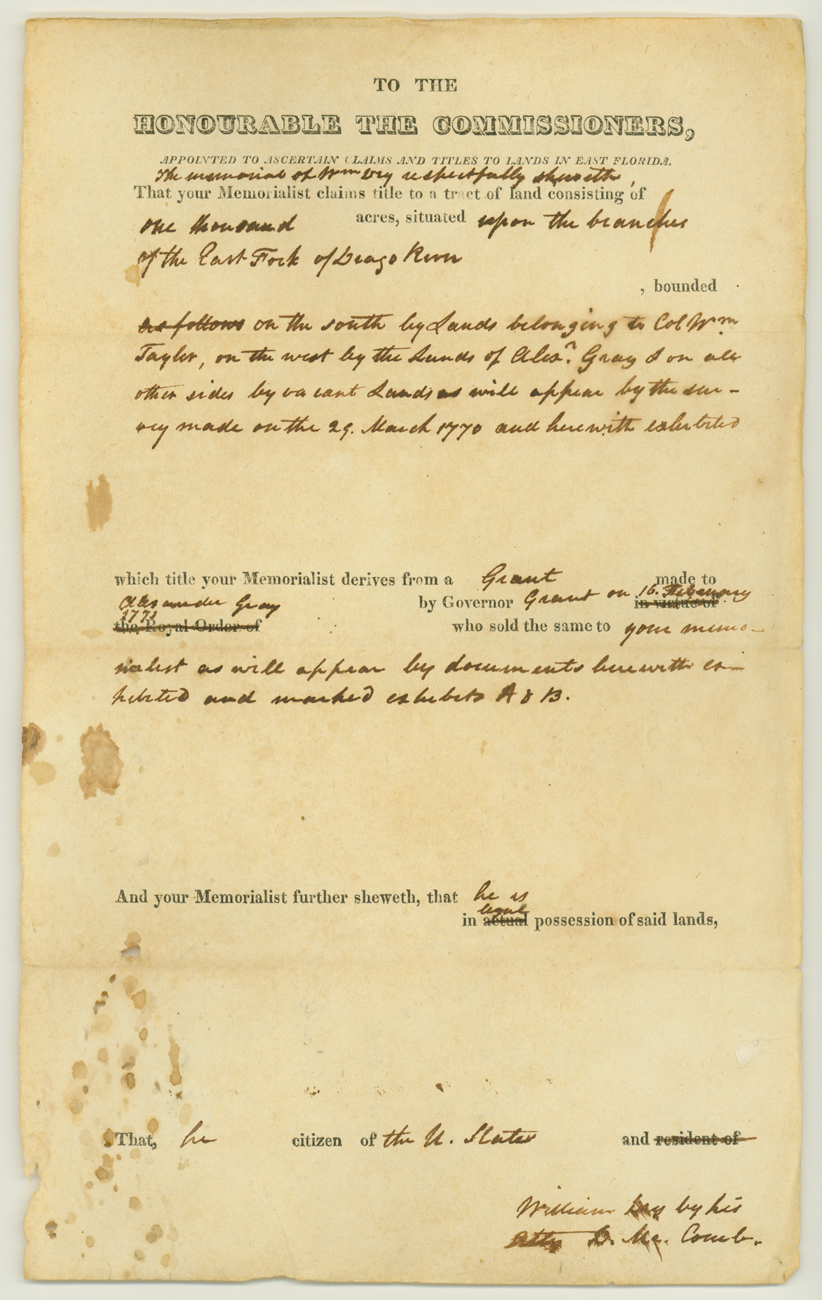 TO THE
HONOURABLE THE COMMISSIONERS,
APPOINTED TO ASCERTAIN CLAIMS AND TITLES TO LANDS IN EAST FLORIDA.
The memorial of Wm respectfully sheweth,
That your Memorialist claims title to a tract of land consisting of
one thousand acres, situated upon the branches
of the East Fork of Diego River
, bounded
as follows on the south by Lands belonging to Col Wm
Taylor, on the west by the Lands of Alexr. Gray & on all
other sides by vacant Lands as will appear by the sur-
vey made on the 29. March 1770 and herewith exhibited
which title your Memorialist derives from a Grant made to
Alexander Gray by Governor Grant on 16. February in virtue of
1771
the Royal Order of who sold the same to your memo-
rialist as will appear by documents herewith ex-
hibited and marked exhibits A & B.
And your Memorialist further sheweth, that he is
legal
in actual possession of said lands,
That, he citizen of the U. States and resident of
William by his
Atty D. Mc. Comb.